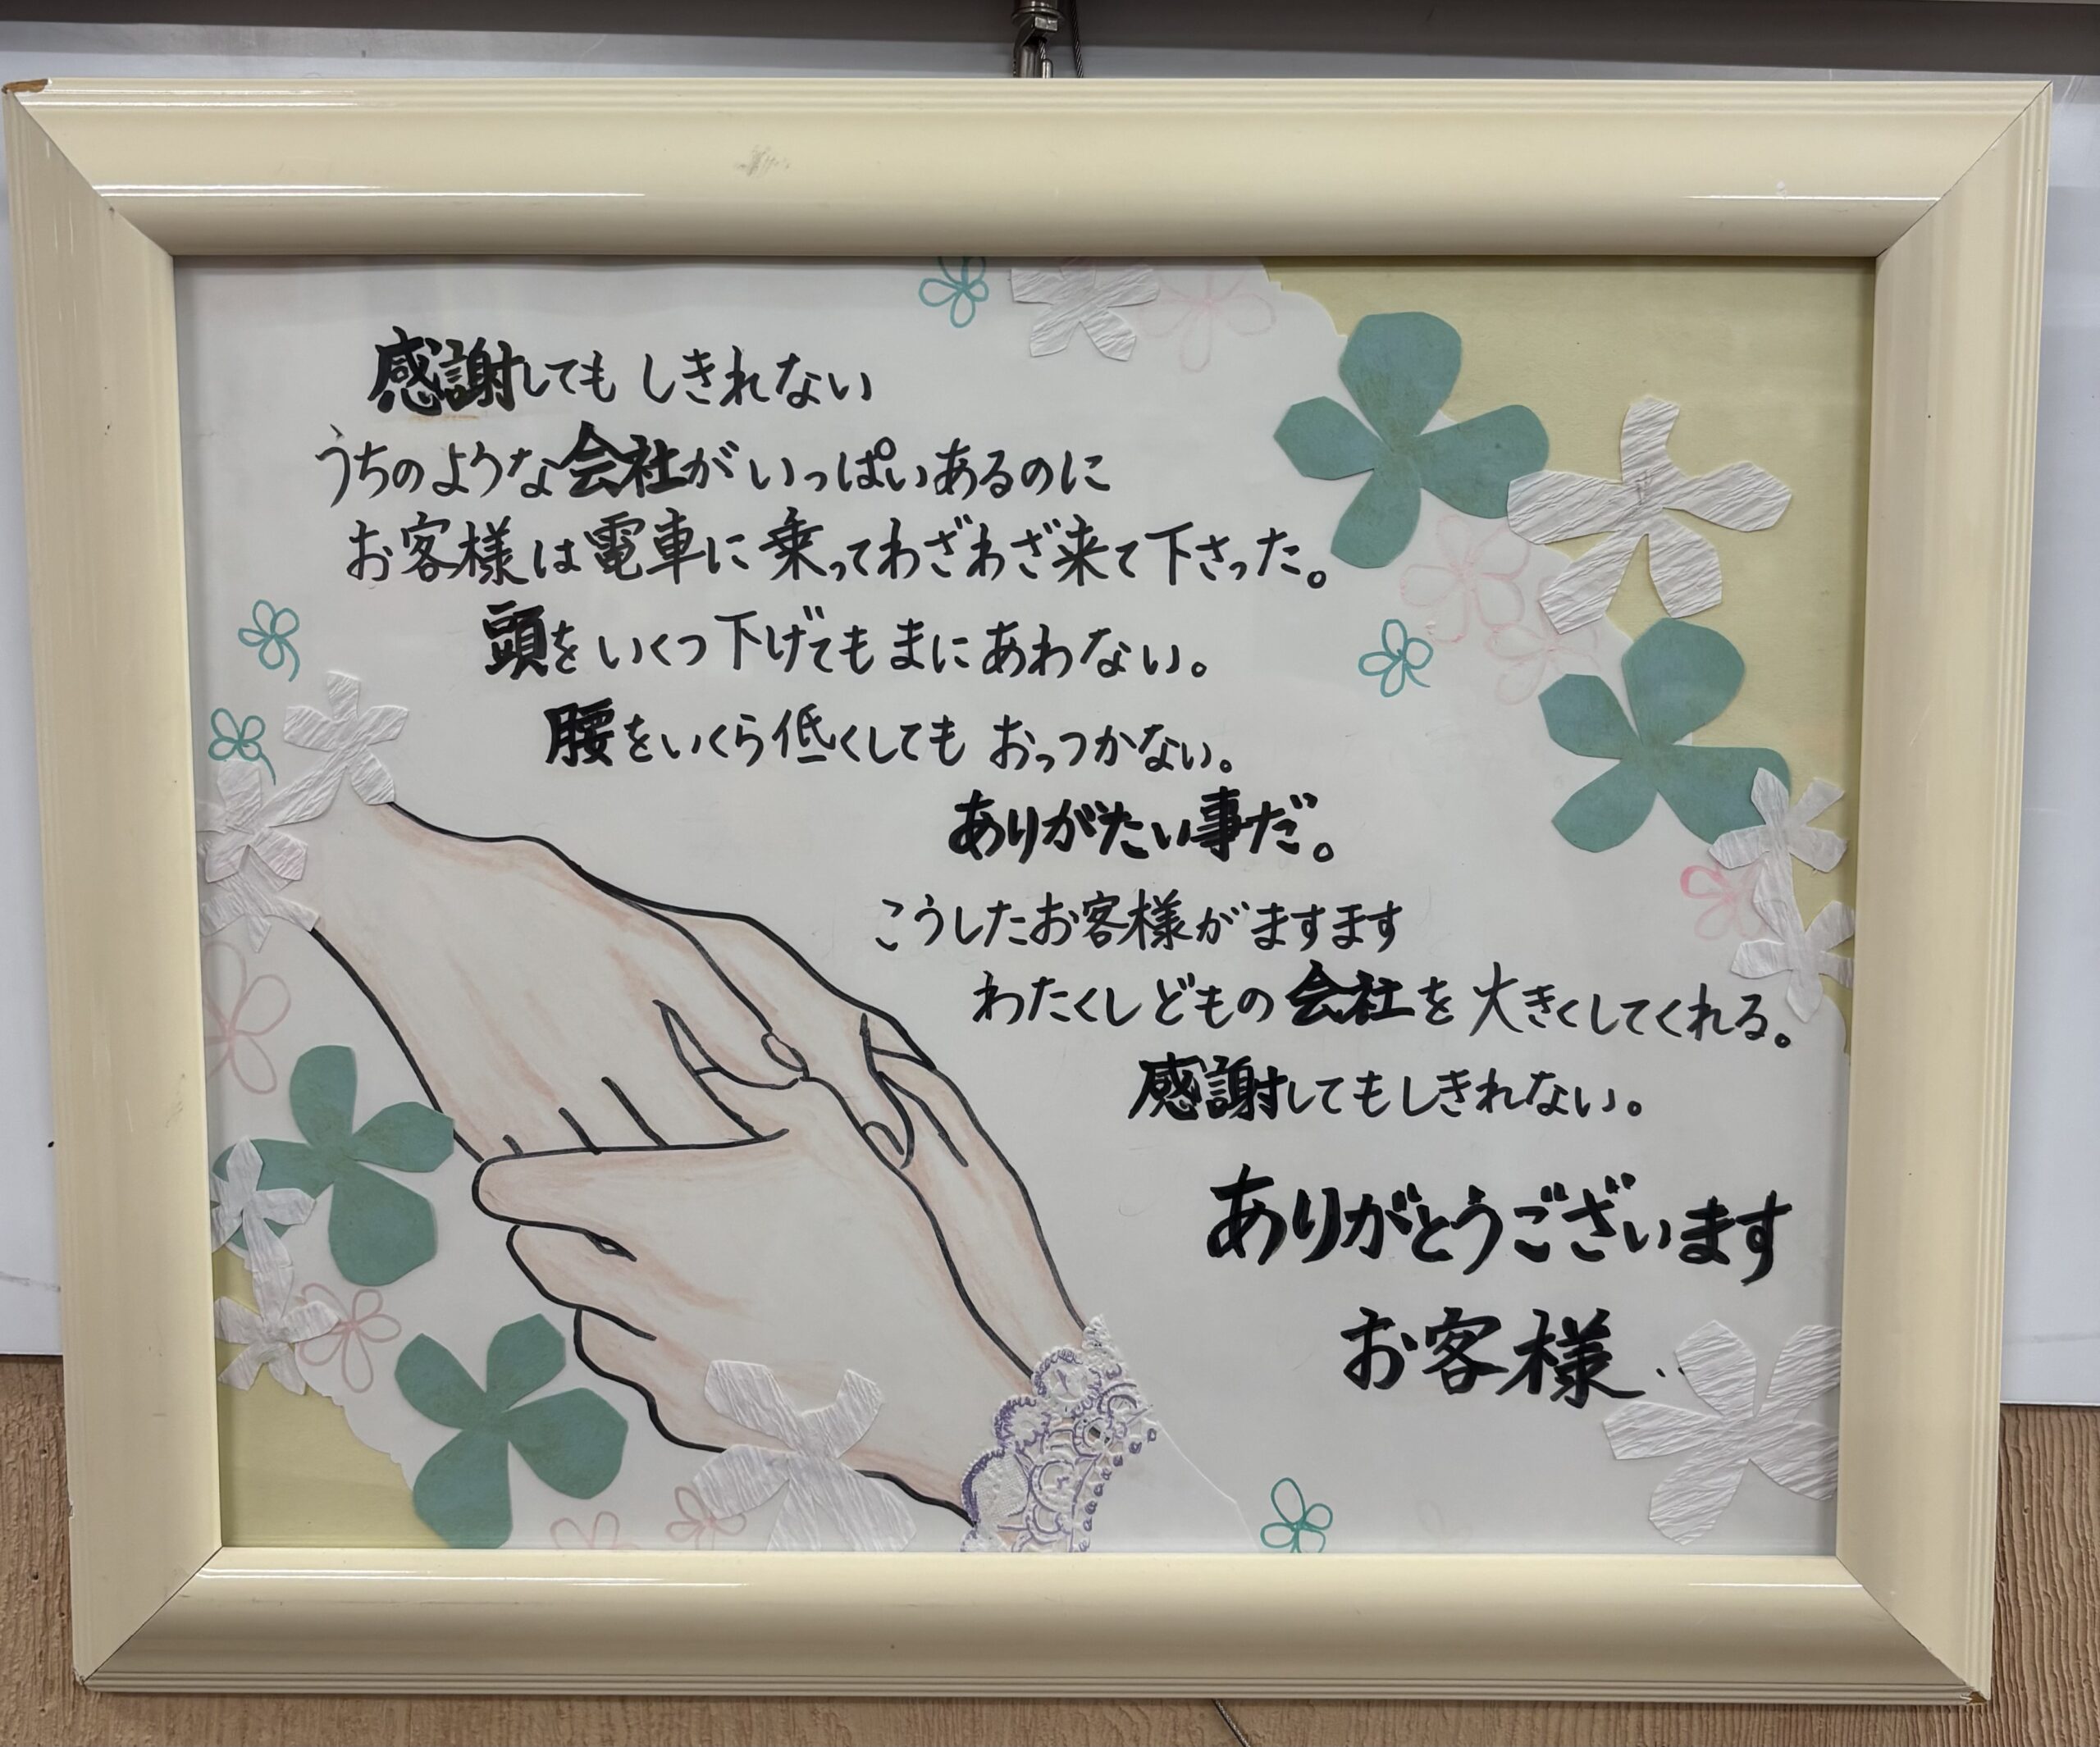 感謝してもしきれない
うちのような会社がいっぱいあるのに
お客様は電車に乗ってわざわざ来て下さった。
頭をいくつ下げてもまにあわない。
腰をいくら低くしてもおっつかない。
ありがたい事だ。
こうしたお客様がますます
わたくしどもの会社を大きくしてくれる。
感謝してもしきれない。
ありがとうございます
お客様‥